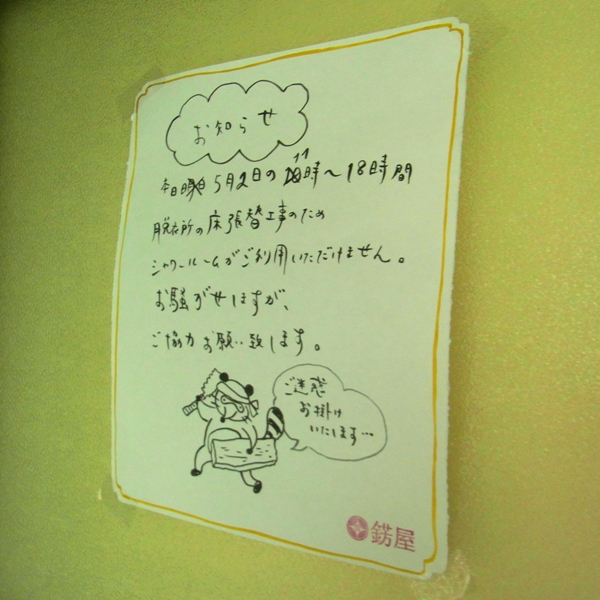 お知らせ
今日 5月2日の11時～18時間
脱衣所の床張替工事のため
シャワールームがご利用いただけません。
お騒がせしますが、
ご協力お願い致します。
ご迷惑
お掛け
いたします…
錺屋